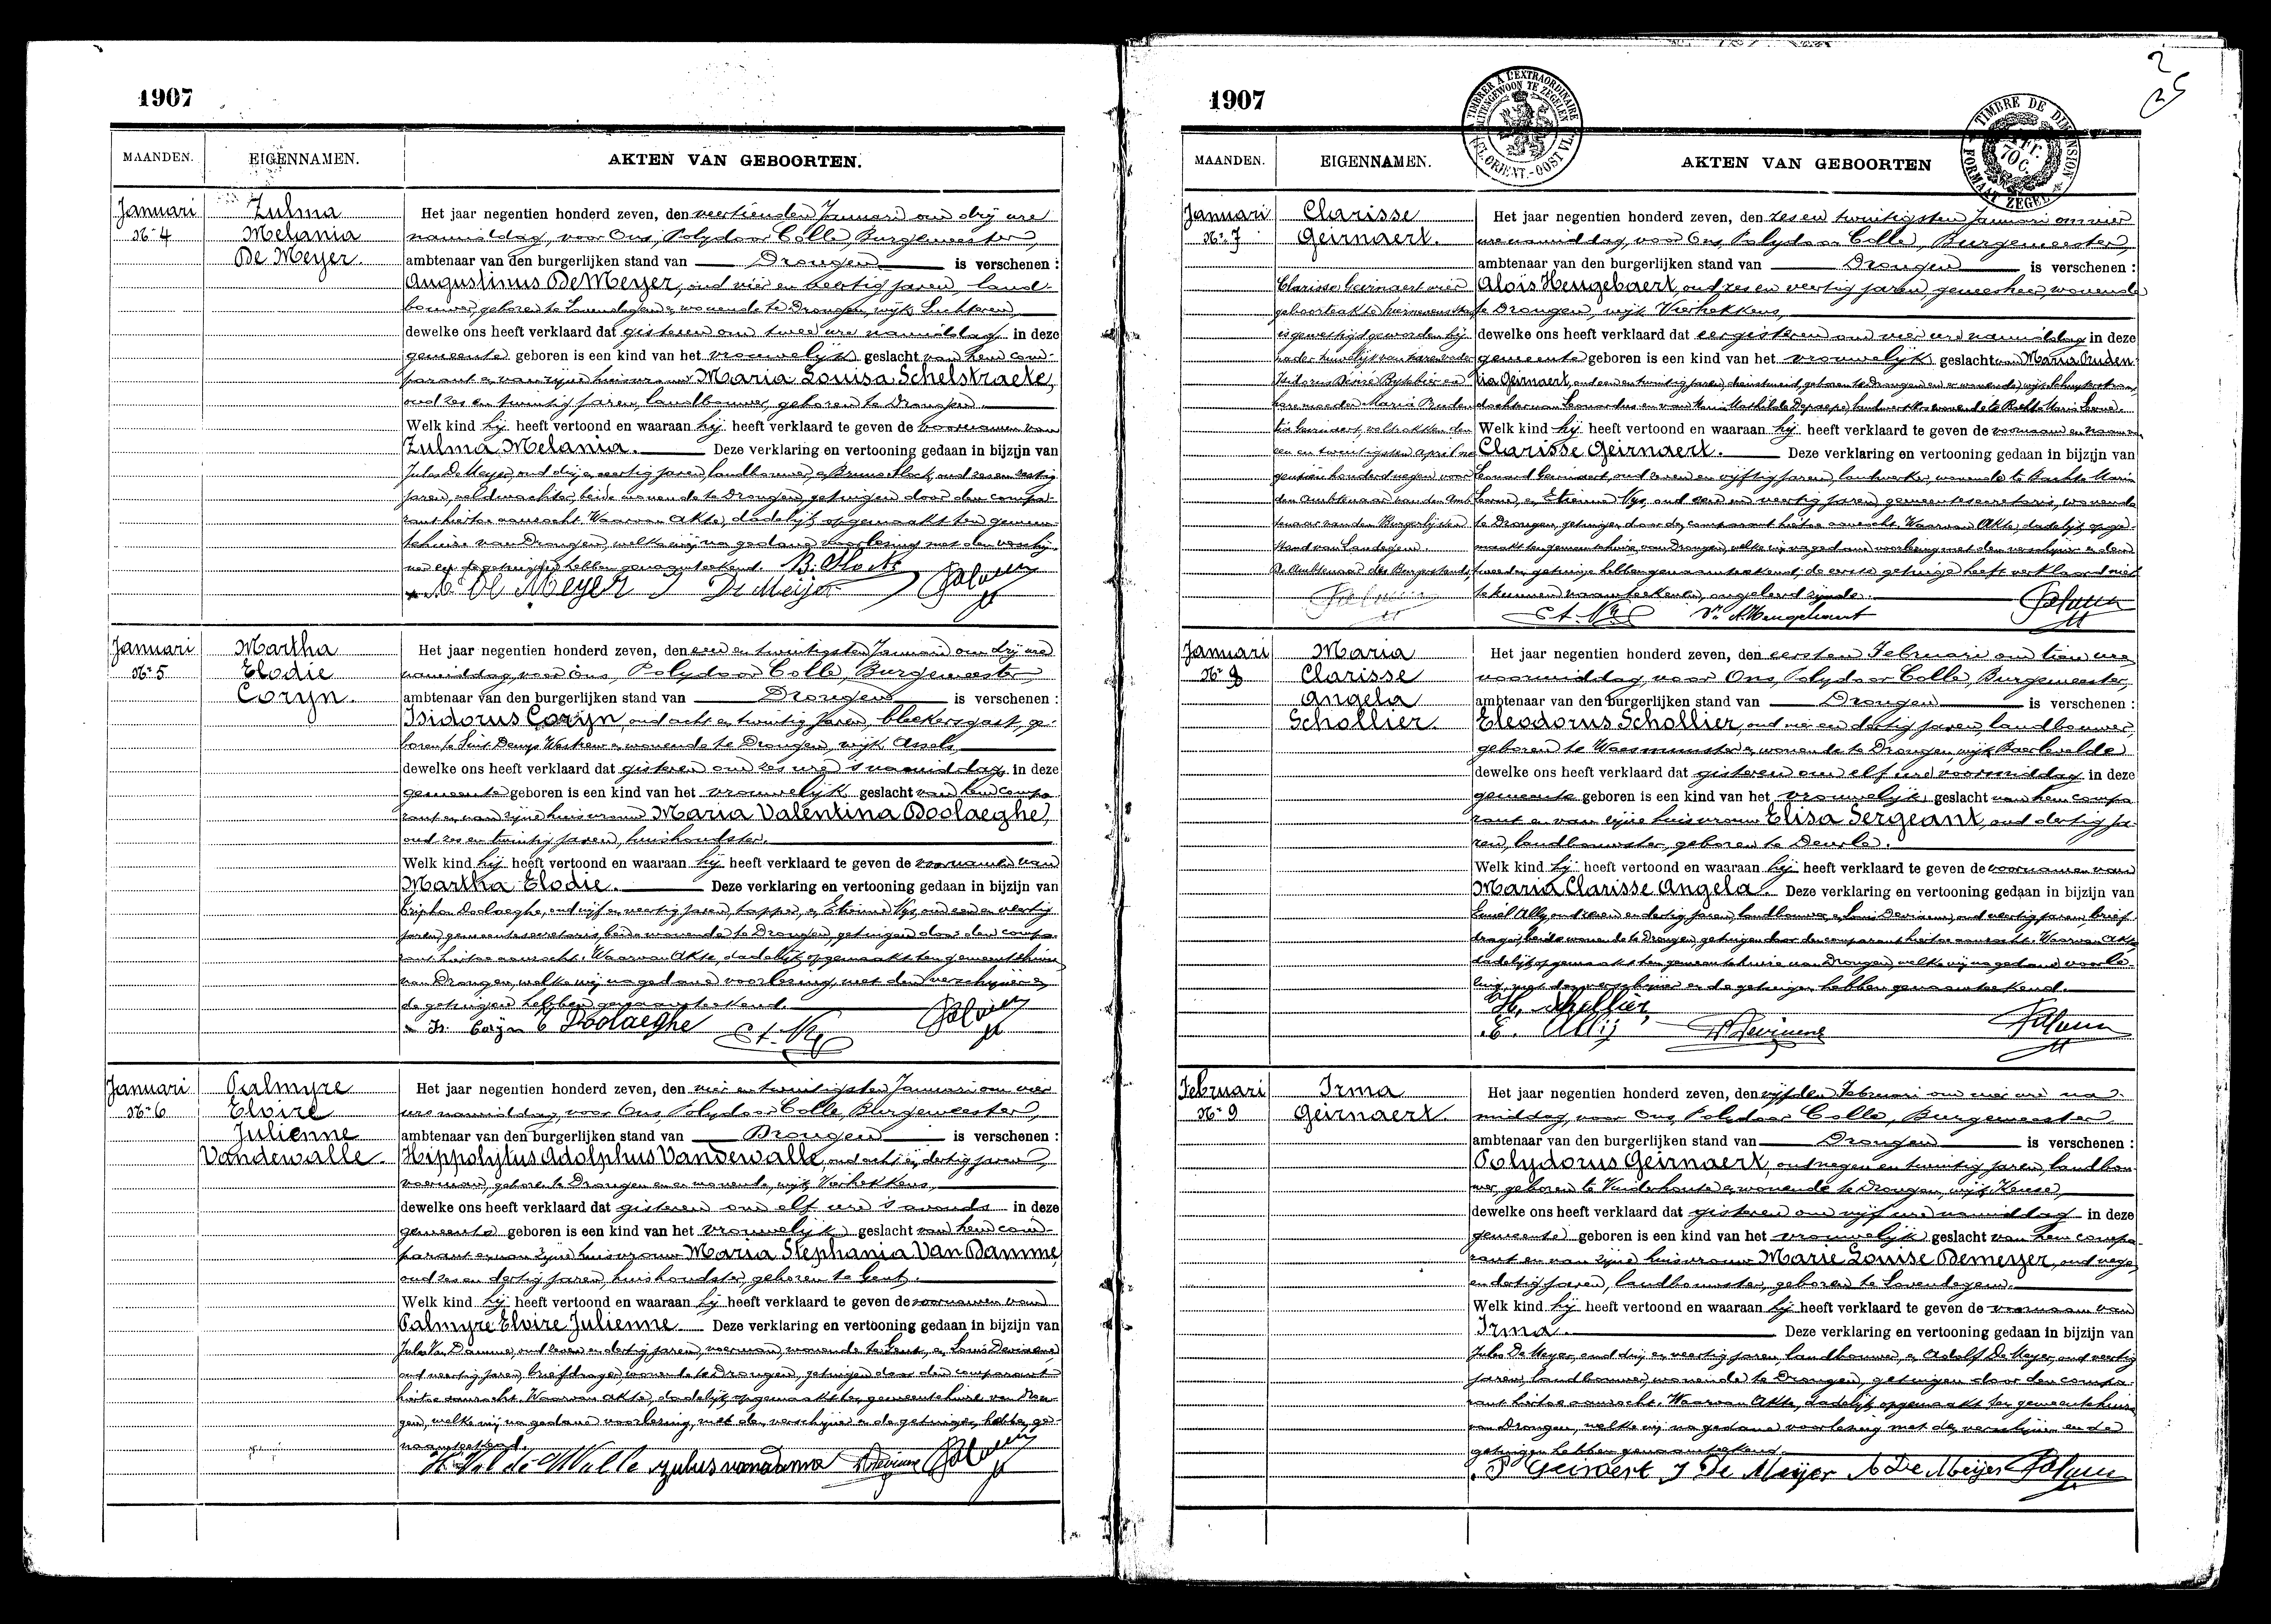 1907
MAANDEN. EIGENNAMEN. AKTEN VAN GEBOORTEN.
Januari
Nr 4
Zulma
Melania
De Meyer.
Het jaar negentien honderd zeven, den veertienden Januari om drij ure
namiddag, voor Ons, Polydoor Colle, Burgemeester,
ambtenaar van den burgerlijken stand van Drongen is verschenen :
Augustinus De Meyer, oud vier en veertig jaren, land-
bouwer, geboren te Lovendegem, wonende te Drongen, wijk Luchteren,
dewelke ons heeft verklaard dat gisteren om twee ure namiddag in deze
gemeente geboren is een kind van het vrouwelijk geslacht van hem com-
parant en van zijne huisvrouw Maria Louisa Schelstraete,
oud zes en twintig jaren, landbouwer, geboren te Drongen.
Welk kind hij heeft vertoond en waaraan hij heeft verklaard te geven de voornamen van
Zulma Melania. Deze verklaring en vertooning gedaan in bijzijn van
Jules De Meyer, oud drij en veertig jaren, landbouwer, en Bruno Hock, oud zes en zestig
jaren, veldwachter, beide wonende te Drongen, getuigen door den compa-
rant hiertoe aanzocht. Waarvan Akte, dadelijk opgemaakt ten gemeen-
tehuize van Drongen, welke wij na gedane voorlezing met den verschij-
ner en de getuigen hebben genaamteekend. B. Hock
A. De Meyer J De Meijer
Januari
Nr 5
Martha
Elodie
Coryn.
Het jaar negentien honderd zeven, den een en twintigsten Januari om drij ure
namiddag voor Ons, Polydoor Colle, Burgemeester
ambtenaar van den burgerlijken stand van Drongen is verschenen :
Isidorus Coryn, oud acht en twintig jaren, bleekersgast, ge-
boren te Sint Denys Westrem en wonende te Drongen, wijk Assels,
dewelke ons heeft verklaard dat gisteren om zes ure 's namiddags in deze
gemeente geboren is een kind van het vrouwelijk geslacht van hem compa-
rant en van zijne huisvrouw Maria Valentina Doolaeghe,
oud zes en twintig jaren, huishoudster.
Welk kind hij heeft vertoond en waaraan hij heeft verklaard te geven de voornamen van
Martha Elodie. Deze verklaring en vertooning gedaan in bijzijn van
Doolaeghe, oud vijf en veertig jaren, en Etienne Nys, oud een en veertig
jaren, gemeentesecretaris, beide wonende te Drongen, getuigen door den compa-
rant hiertoe aanzocht. Waarvan Akte, dadelijk opgemaakt ten gemeentehuize
van Drongen, welke wij na gedane voorlezing, met den verschijner en
de getuigen hebben genaamteekend.
Is. Corijn E Doolaeghe Et. Nys
Januari
Nr 6
Palmyre
Elvire
Julienne
Vandewalle.
Het jaar negentien honderd zeven, den vier en twintigsten Januari om vier
ure namiddag, voor Ons, Polydoor Colle, Burgemeester,
ambtenaar van den burgerlijken stand van Drongen is verschenen :
Hippolytus Adolphus Vandewalle, oud acht en dertig jaren,
voerman, geboren te Drongen en er wonende, wijk Vierhekkens,
dewelke ons heeft verklaard dat gisteren om elf ure 's avonds in deze
gemeente geboren is een kind van het vrouwelijk geslacht van hem com-
parant en van zijne huisvrouw Maria Stephania Van Damme,
oud zes en dertig jaren, huishoudster, geboren te Gent.
Welk kind hij heeft vertoond en waaraan hij heeft verklaard te geven de voornamen van
Palmyre Elvire Julienne Deze verklaring en vertooning gedaan in bijzijn van
Jules Van Damme, oud zeven en dertig jaren, voerman, wonende te Gent, en Louis Deviaene
oud veertig jaren, briefdrager, wonende te Drongen, getuigen door den comparant
hiertoe aanzocht. Waarvan akte, dadelijk opgemaakt ten gemeentehuize van Dron-
gen, welke wij na gedane voorlezing, met den verschijner en de getuigen, hebben ge-
naamteekend.
julius vandama
1907
MAANDEN. EIGENNAMEN. AKTEN VAN GEBOORTEN
TIMBRÉ A L'EXTRAORDINAIRE
BUITENGEWOON TE ZEGELEN
FL. ORIENT. - OOST VL.
TIMBRE DE DIMENSION
70 C.
FORMAAT ZEGEL
2
25
Januari
Nr 7
Clarisse
Geirnaert.
Het jaar negentien honderd zeven, den zes en twintigsten Januari om vier
ure namiddag, voor Ons, Polydoor Colle, Burgemeester,
ambtenaar van den burgerlijken stand van Drongen is verschenen :
Aloïs Heugebaert, oud zes en veertig jaren, geneesheer, wonende
te Drongen, wijk Vierhekkens,
dewelke ons heeft verklaard dat eergisteren om vier ure namiddag in deze
gemeente geboren is een kind van het vrouwelijk geslacht van Maria Pruden-
tia Geirnaert, oud een en twintig jaren, dienstmeid, geboren te Drongen en er wonende, wijk
dochter van Leonardus en van Marie Mathilde Depaepe, landwerkster, wonende te Bachte Maria Leerne.
Welk kind hij heeft vertoond en waaraan hij heeft verklaard te geven de voornaam en naam van
Clarisse Geirnaert. Deze verklaring en vertooning gedaan in bijzijn van
Leonard Geirnaert, oud zeven en vijftig jaren, landwerker, wonende te Bachte Maria
Leerne, en Etienne Nys, oud een en veertig jaren, gemeentesecretaris, wonende
te Drongen, getuigen door den comparant hiertoe aanzocht. Waarvan Akte, dadelijk opge-
maakt ten gemeentehuize van Drongen, welke wij na gedane voorlezing met den verschijner en den
tweeden getuige hebben genaamteekend; de eerste getuige heeft verklaard niet
te kunnen naamteekenen, ongeleerd zijnde.
Clarisse Geirnaert wier
geboorteakte hiernevens staat
is gewettigd geworden bij
haren vader
Isidorus Désiré en
hare moeder Maria Pruden-
tia Geirnaert, voltrokken den
een en twintigsten april ne-
gentien honderd negen voor
den Ambtenaar van den
Burgerlijken
stand van Landegem.
De Ambtenaar des Burgerstands,
Et. Nys Dr A. Heugebaert
Januari
Nr 8
Maria
Clarisse
Angela
Schollier.
Het jaar negentien honderd zeven, den eersten Februari om tien ure
voormiddag, voor Ons, Polydoor Colle, Burgemeester,
ambtenaar van den burgerlijken stand van Drongen is verschenen :
Eleodorus Schollier, oud vier en dertig jaren, landbouwer,
geboren te Waesmunster en wonende te Drongen, wijk Baerlevelde
dewelke ons heeft verklaard dat gisteren om elf ure voormiddag in deze
gemeente geboren is een kind van het vrouwelijk geslacht van hem compa-
rant en van zijne huisvrouw Elisa Sergeant, oud dertig ja-
ren, landbouwster, geboren te Deurle.
Welk kind hij heeft vertoond en waaraan hij heeft verklaard te geven de voornamen van
Maria Clarisse Angela. Deze verklaring en vertooning gedaan in bijzijn van
Emiel Ally, oud zeven en dertig jaren, landbouwer, en Louis Deviaene, oud veertig jaren, brief-
drager, beide wonende te Drongen, getuigen door den comparant hiertoe aanzocht. Waarvan Akte,
dadelijk opgemaakt ten gemeentehuize van Drongen, welke wij na gedane voorle-
zing, met den verschijner en de getuigen hebben genaamteekend.
H. Schellier
E. Allij
Februari
Nr 9
Irma
Geirnaert.
Het jaar negentien honderd zeven, den vijfden Februari om vier ure na-
middag, voor Ons, Polydoor Colle, Burgemeester
ambtenaar van den burgerlijken stand van Drongen is verschenen :
Polydorus Geirnaert, oud negen en twintig jaren, landbou-
wer, geboren te Vinderhoute en wonende te Drongen, wijk Keuze,
dewelke ons heeft verklaard dat gisteren om vijf ure namiddag in deze
gemeente geboren is een kind van het vrouwelijk geslacht van hem compa-
rant en van zijne huisvrouw Marie Louise Demeyer, oud negen
en dertig jaren, landbouwster, geboren te Lovendegem.
Welk kind hij heeft vertoond en waaraan hij heeft verklaard te geven de voornaam van
Irma. Deze verklaring en vertooning gedaan in bijzijn van
Jules De Meyer, oud drij en veertig jaren, landbouwer, en Adolf De Meyer, oud veertig
jaren, landbouwer, wonende te Drongen, getuigen door den compa-
rant hiertoe aanzocht. Waarvan Akte, dadelijk opgemaakt ten gemeentehuize
van Drongen, welke wij na gedane voorlezing met den verschijner en de
getuigen hebben genaamteekend.
P Geirnaert J De Meijer A De Meijer